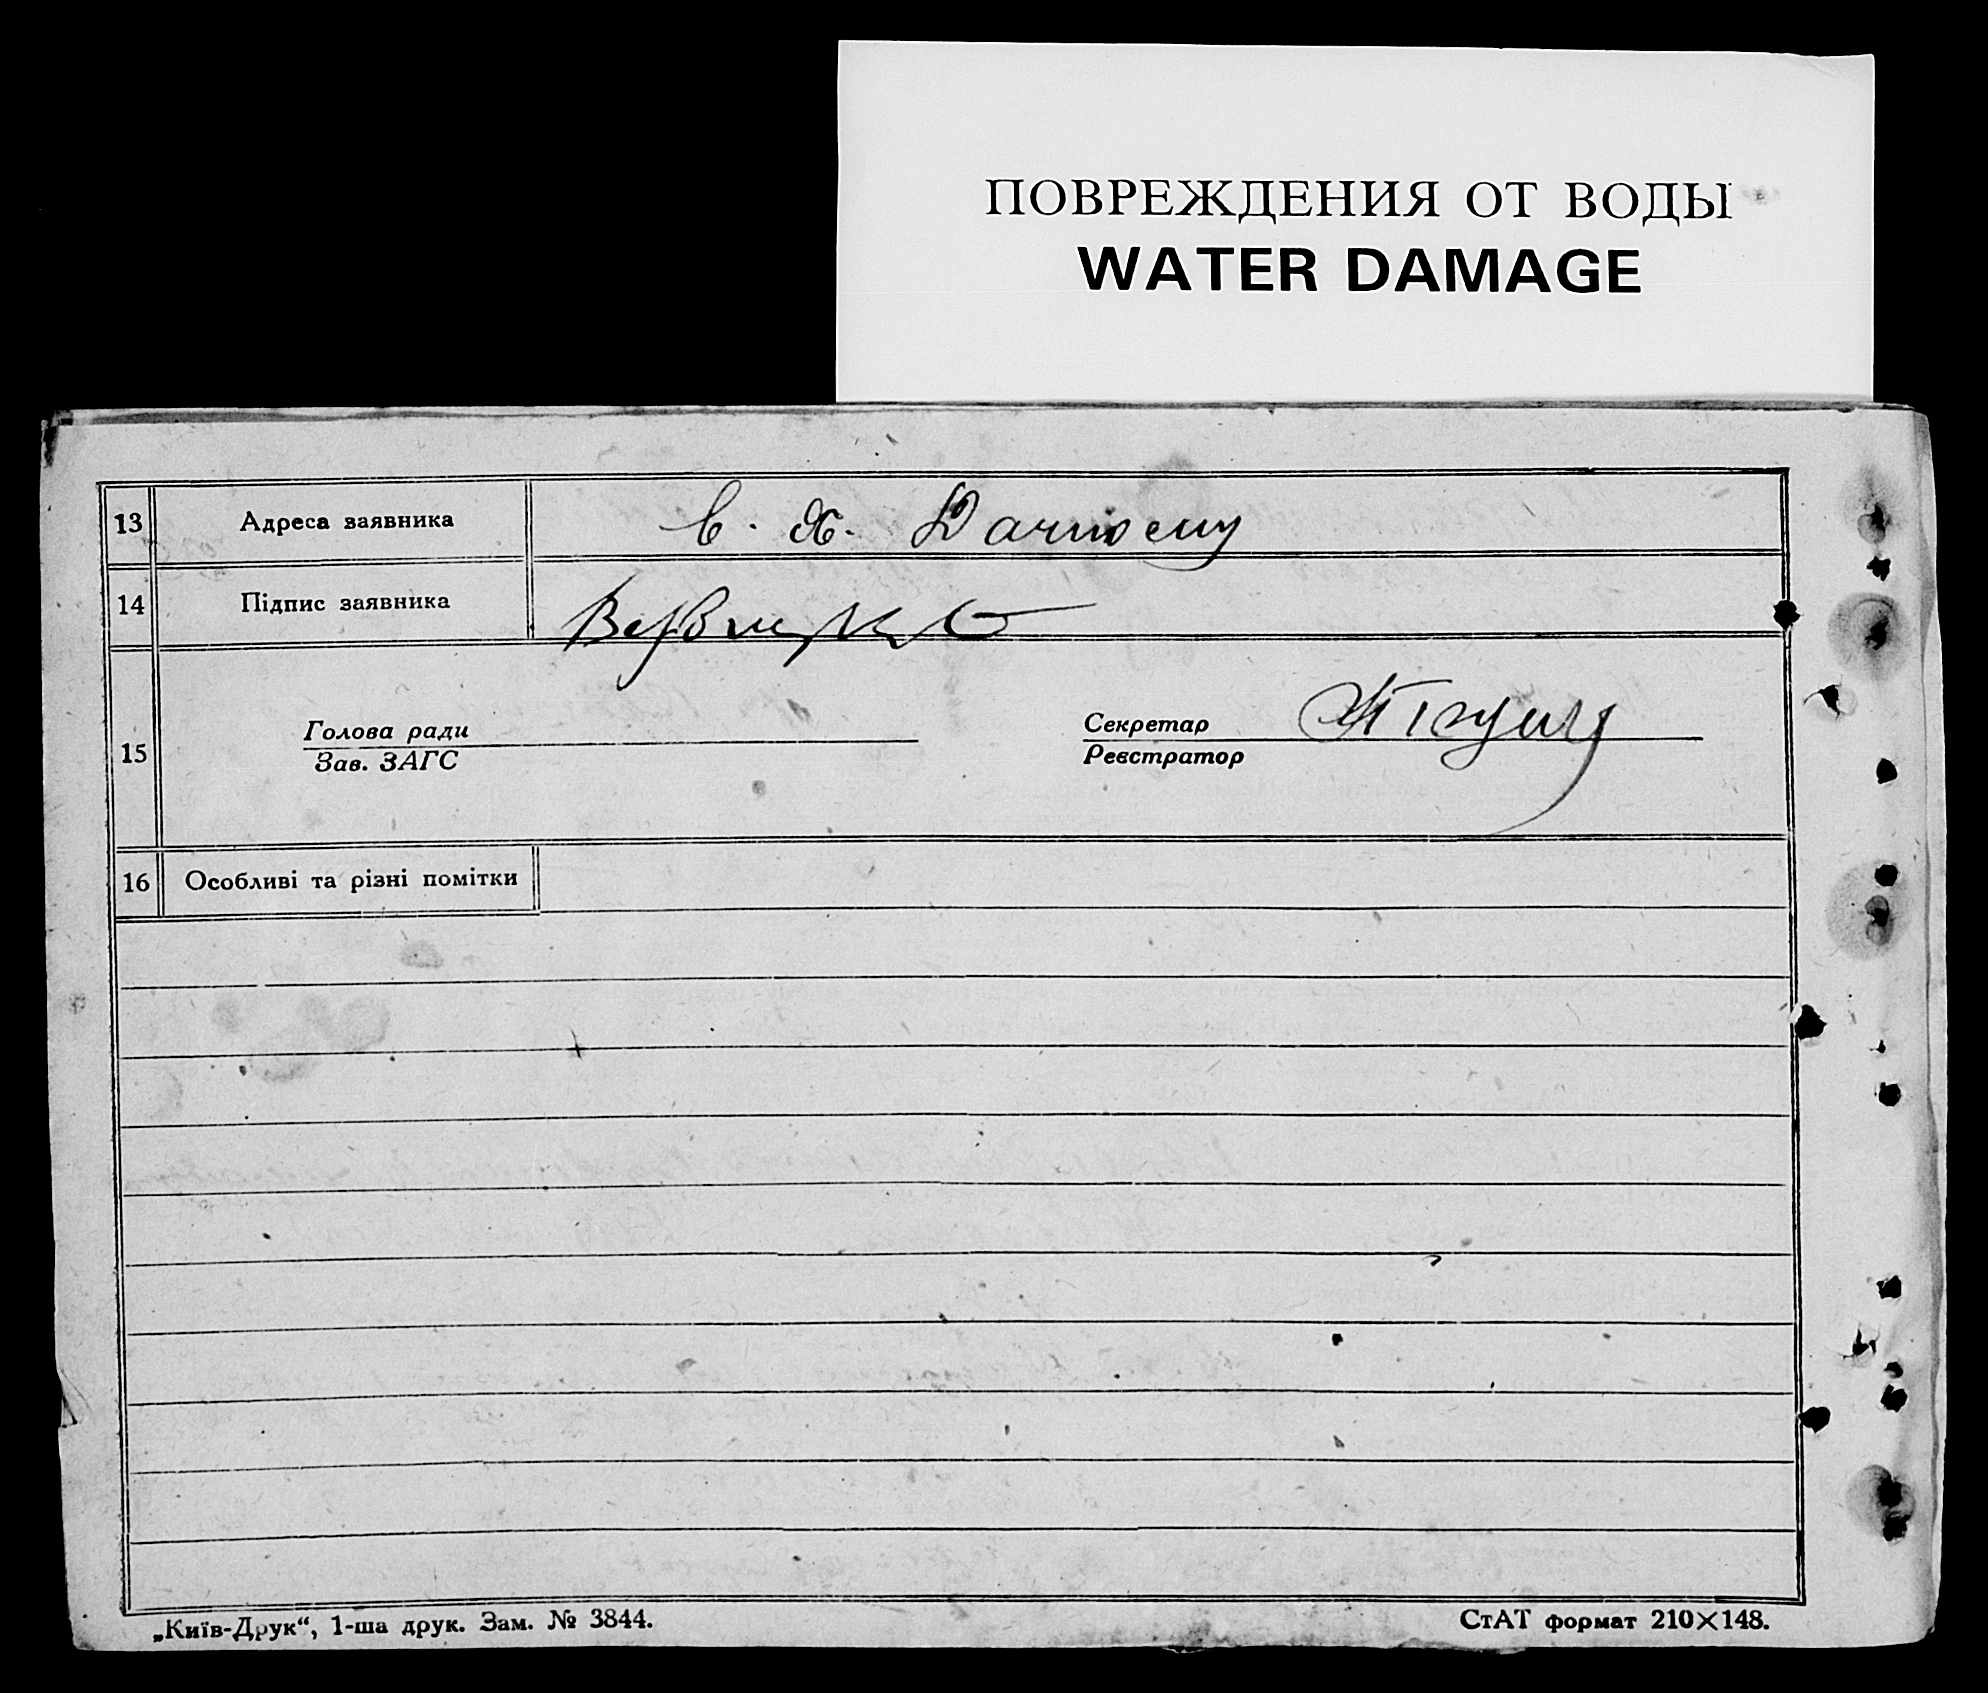 ПОВРЕЖДЕНИЯ ОТ ВОДЫ
WATER DAMAGE
13 Адреса заявника в. х. Дачному
14 Підпис заявника
Голова ради Секретар
15
Зав. ЗАГС Реєстратор
16 Особливі та різні помітки
„Київ-Друк“, 1-ша друк. Зам. № 3844. СтАТ формат 210×148.